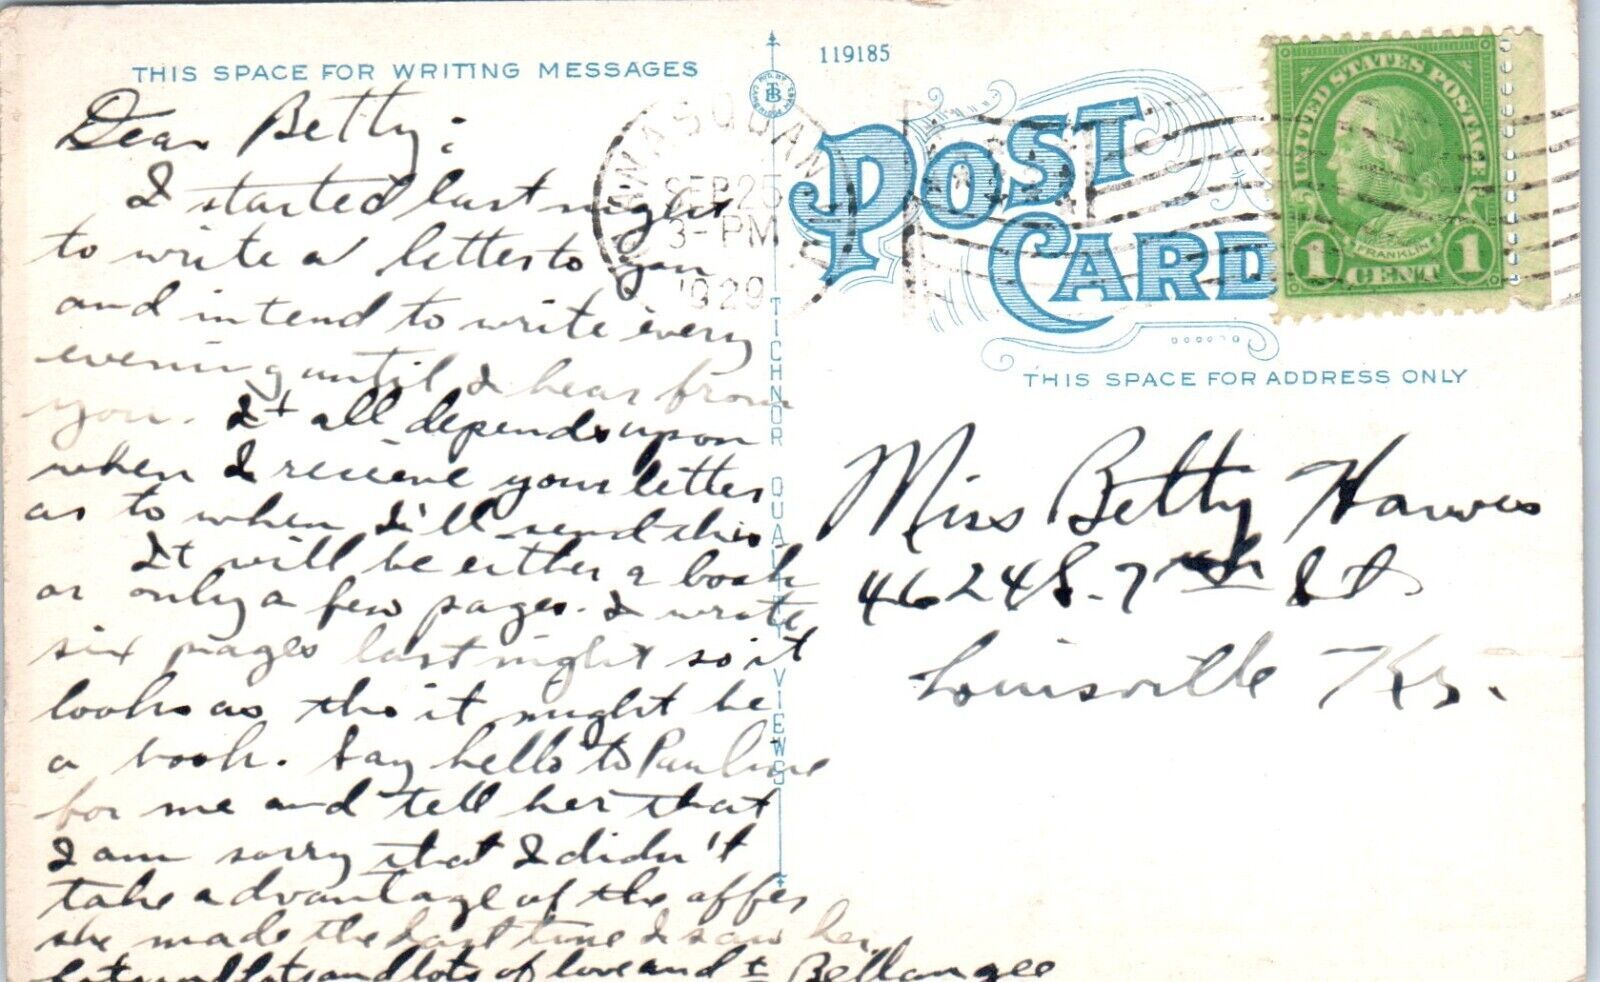 THIS SPACE FOR WRITING MESSAGES
Dear Betty:
I started last night
to write a letter to you
and intend to write every
evening until I hear from
you. It all depends upon
when I recieve your letter
as to when I'll send this
It will be either a book
or only a few pages. I wrote
six pages last night so it
looks as tho it might be
a book. Say hello to Pauline
for me and tell her that
I am sorry that I didn't
take advantage of the offer
she made the last time I saw her.
Lots and lots and lots of love and
Bellangee
119185
TICHNOR QUALITY VIEWS
MANASQUAN
SEP 25
3-PM
1929
POST CARD
UNITED STATES POSTAGE
FRANKLIN
1 CENT 1
THIS SPACE FOR ADDRESS ONLY
Miss Betty
4624 S. 7 St.
Louisville Ky.